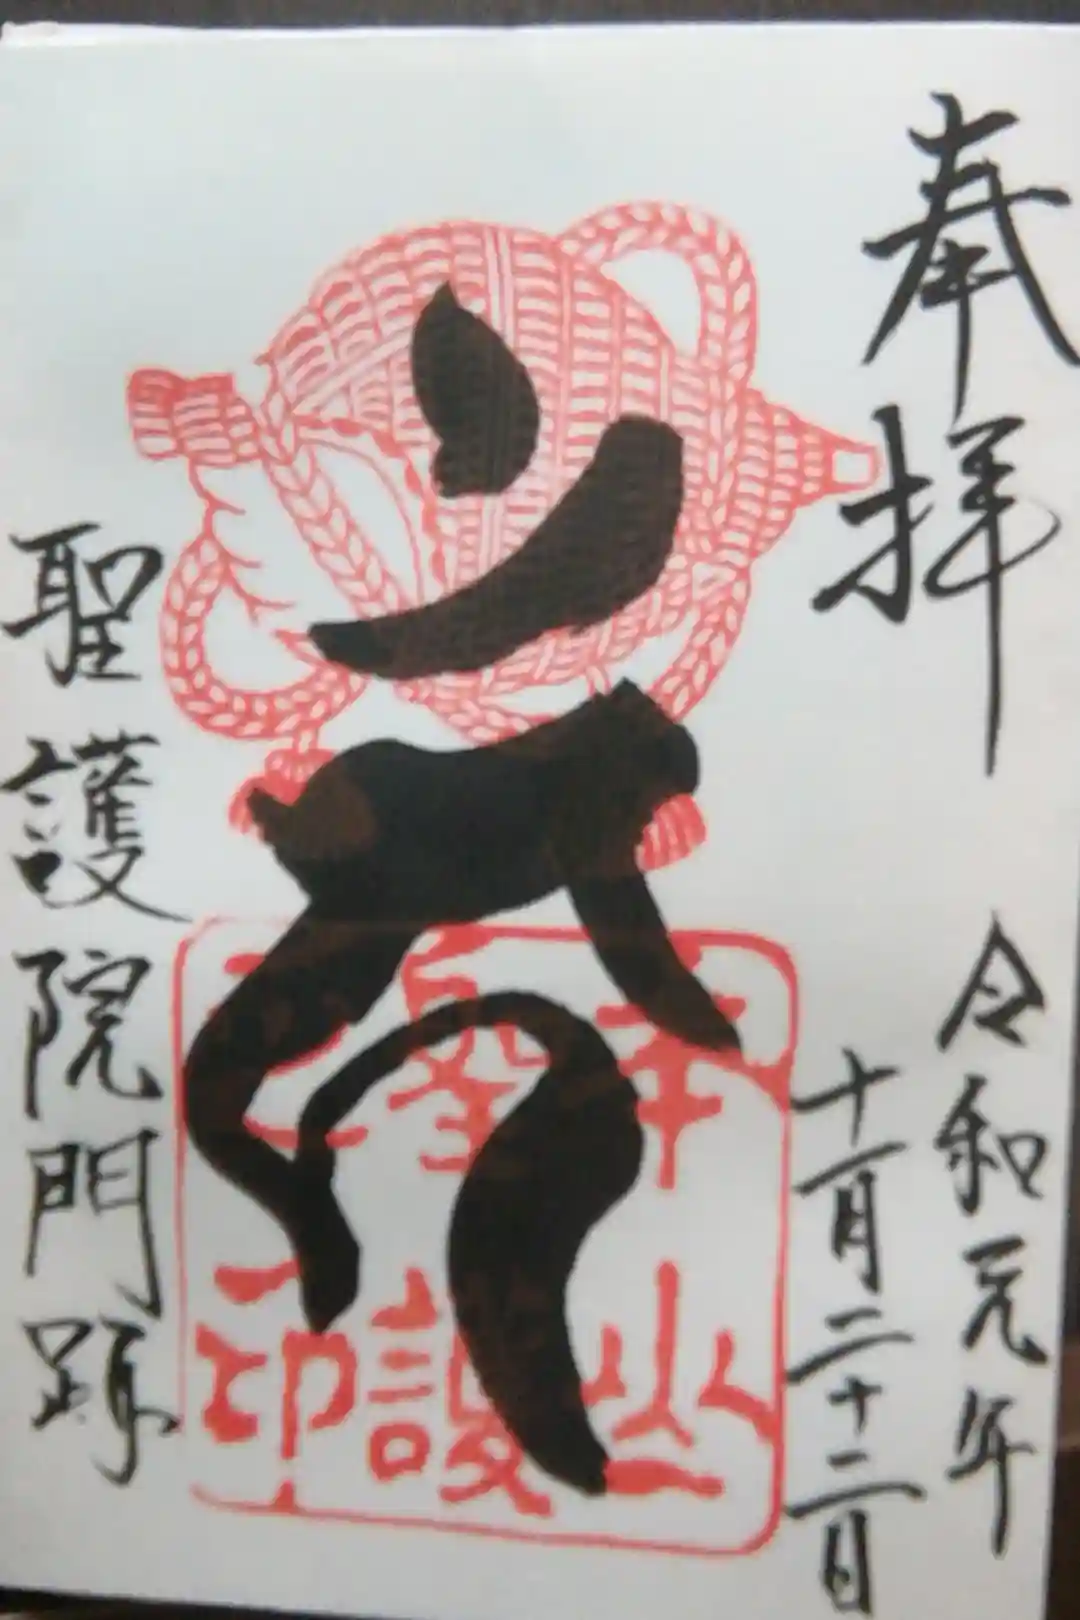 奉拝
令和元年
十一月二十二日
聖護
聖護院門跡